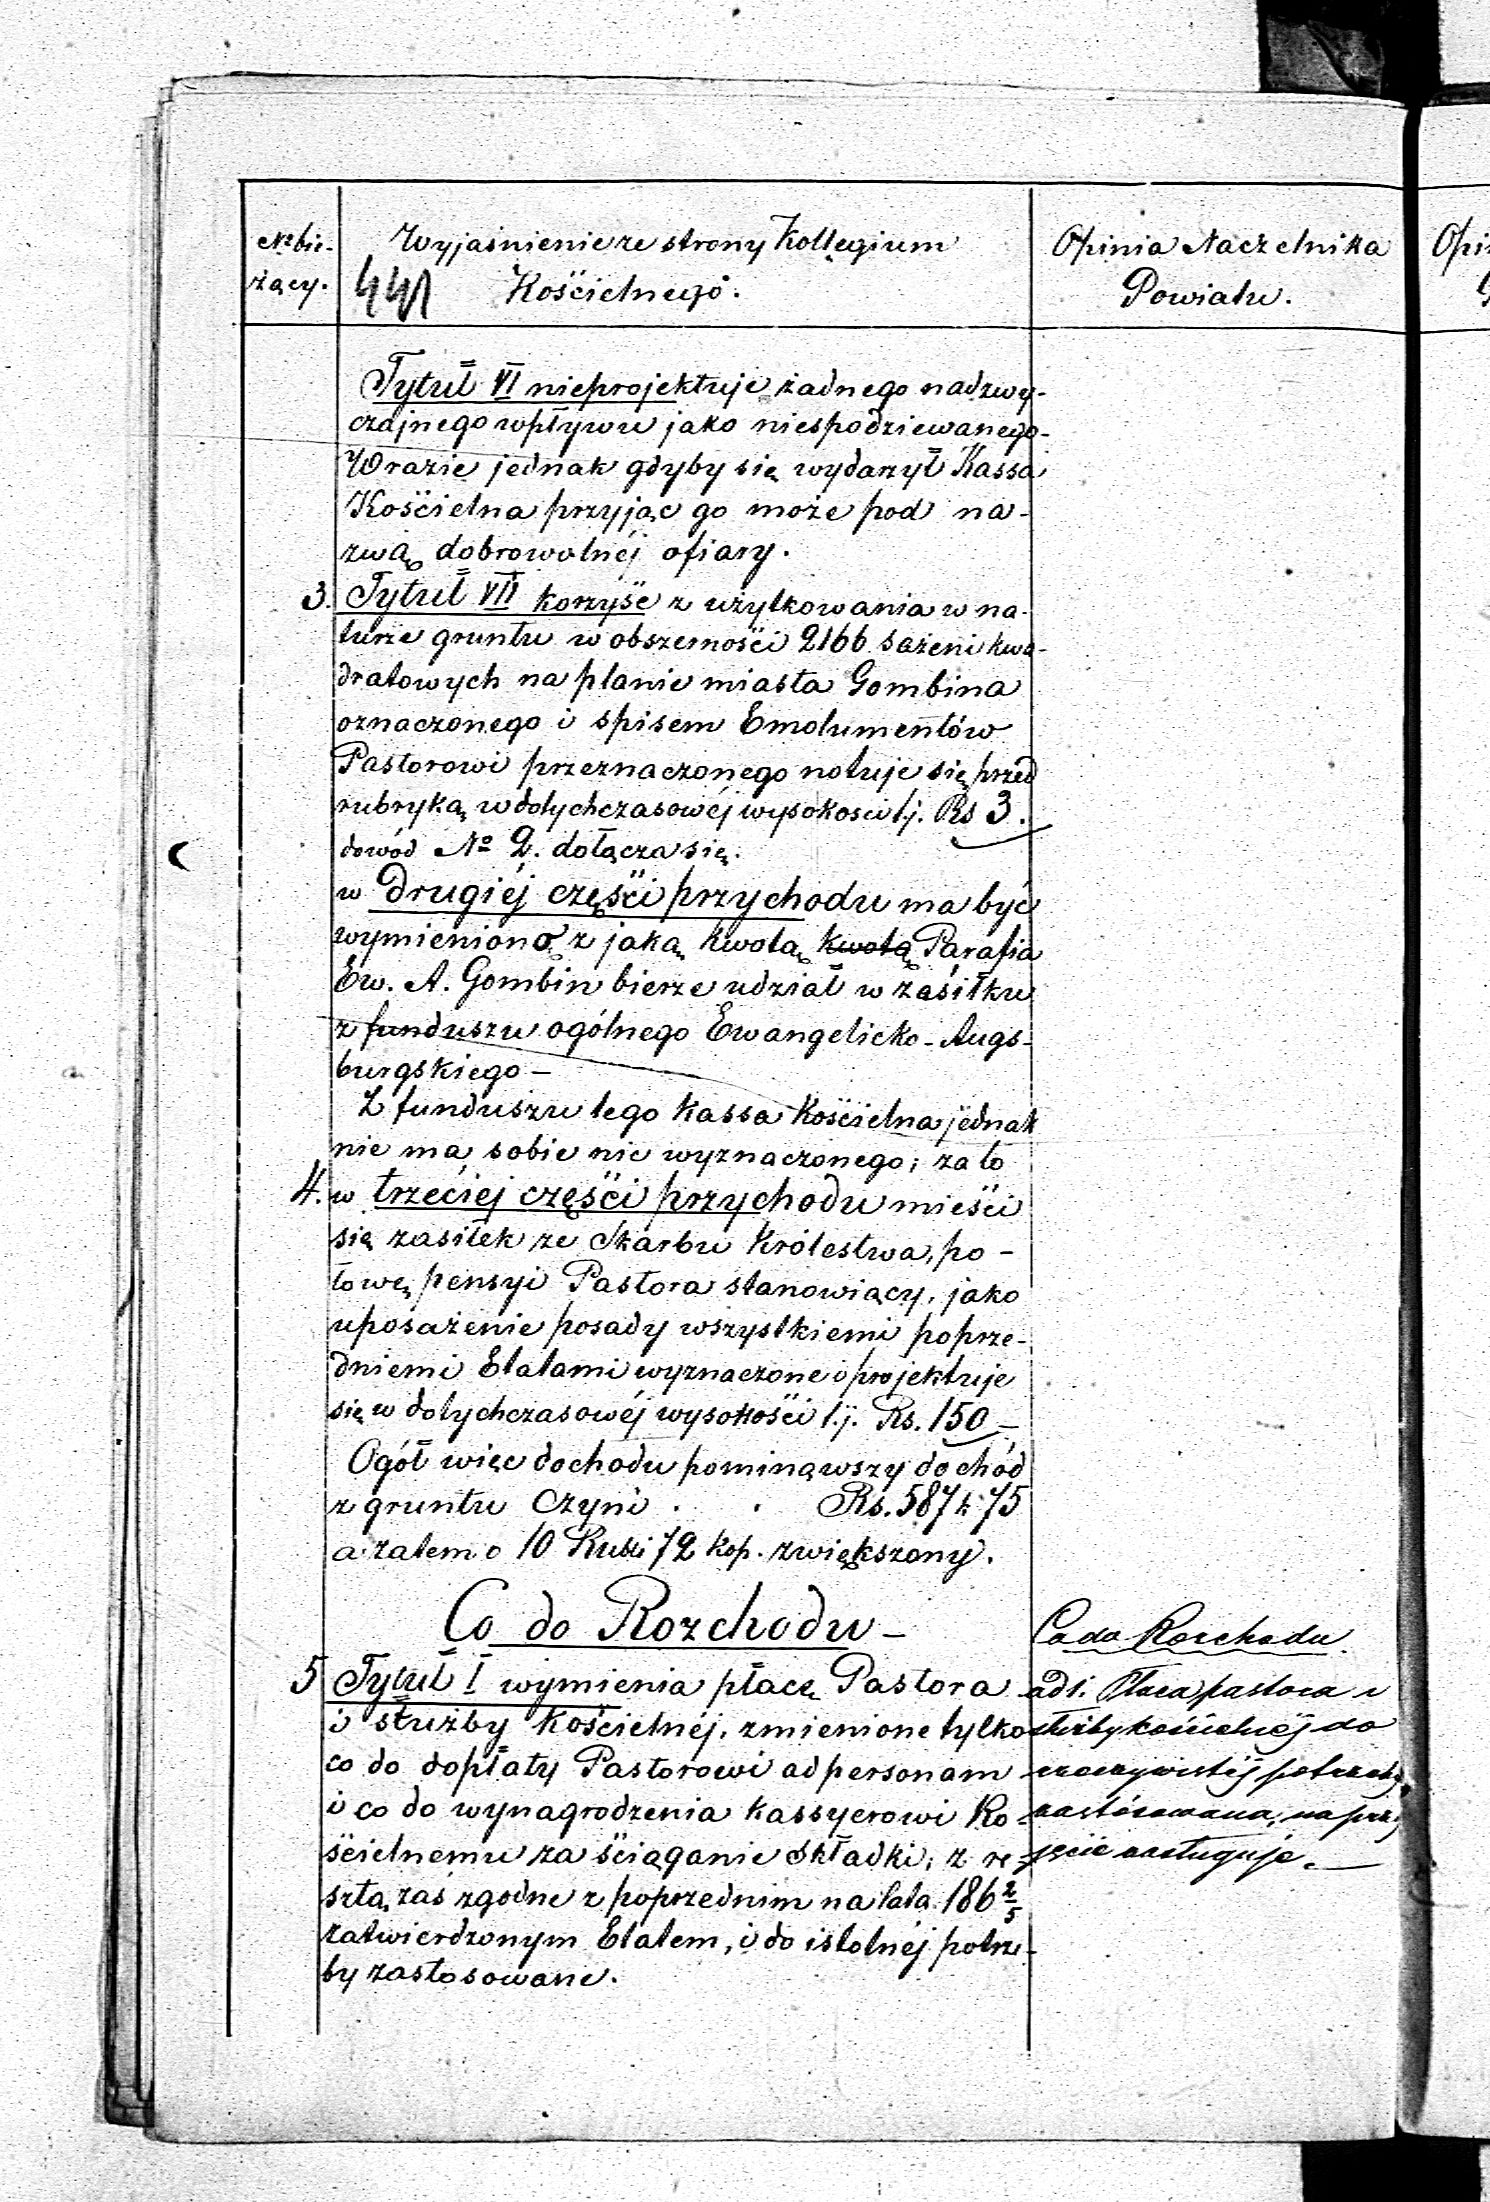 № bie-
żący.
Wyjaśnienie ze strony Kollegium
Kościelnego.
441
Opinia Naczelnika
Powiatu.
Opi
Tytuł VI nieprojektuje żadnego nadzwy-
czajnego wpływu jako niespodziewanego-
Wrazie jednak gdyby się wydarzył Kassa
Kościelna przyjąc go może pod na-
zwą dobrowolnéj ofiary.
3. Tytuł VII korzyść z użytkowania w na-
turze gruntu w obszerności 2166 sażeni kwa-
dratowych na planie miasta Gombina
oznaczonego i spisem Emolumentów
Pastorowi przeznaczonego notuje się przed
rubryką w dotychczasowéj wysokosci t.j. Rs 3.
dowód № 2. dołącza się.
w drugiéj części przychodu ma być
wymieniono z jaką kwotą kwotą Parafia
Ew. A. Gombin bierze udział w zasiłku
z funduszu ogólnego Ewangelicko-Augs-
burgskiego –
Z funduszu tego Kassa Kościelna jednak
nie ma sobie nic wyznaczonego; za to
4. w trzeciej części przychodu mieści
się zasiłek ze Skarbu Królestwa, po-
łowę pensyi Pastora stanowiący, jako
uposażenie posady wszystkiemi poprze-
dniemi Etatami wyznaczone i projektuje
się w dotychczasowéj wysokości t.j. Rs. 150 –
Ogół więc dochodu pominąwszy dochód
z gruntu czyni . . Rs. 587 k. 75
a zatem o 10 Rubli 72 kop. zwiększony.
Co do Rozchodu –
5 Tytuł I wymienia płacę Pastora
i służby Kościelnéj, zmienione tylko
co do dopłaty Pastorowi ad personam
i co do wynagrodzenia kassyerowi Ko-
ścielnemu za ściąganie składki; z re-
sztą zaś zgodne z poprzednim na lata 186 2/5
zatwierdzonym Etatem, i do istotnéj potrze-
by zastosowane.
Co do Rozchodu.
ad 1. Płaca pastora i
służby kościelnéj do
rzeczywistéj potrzeby
zastósowana, na przy
jęcie zasługuje. –